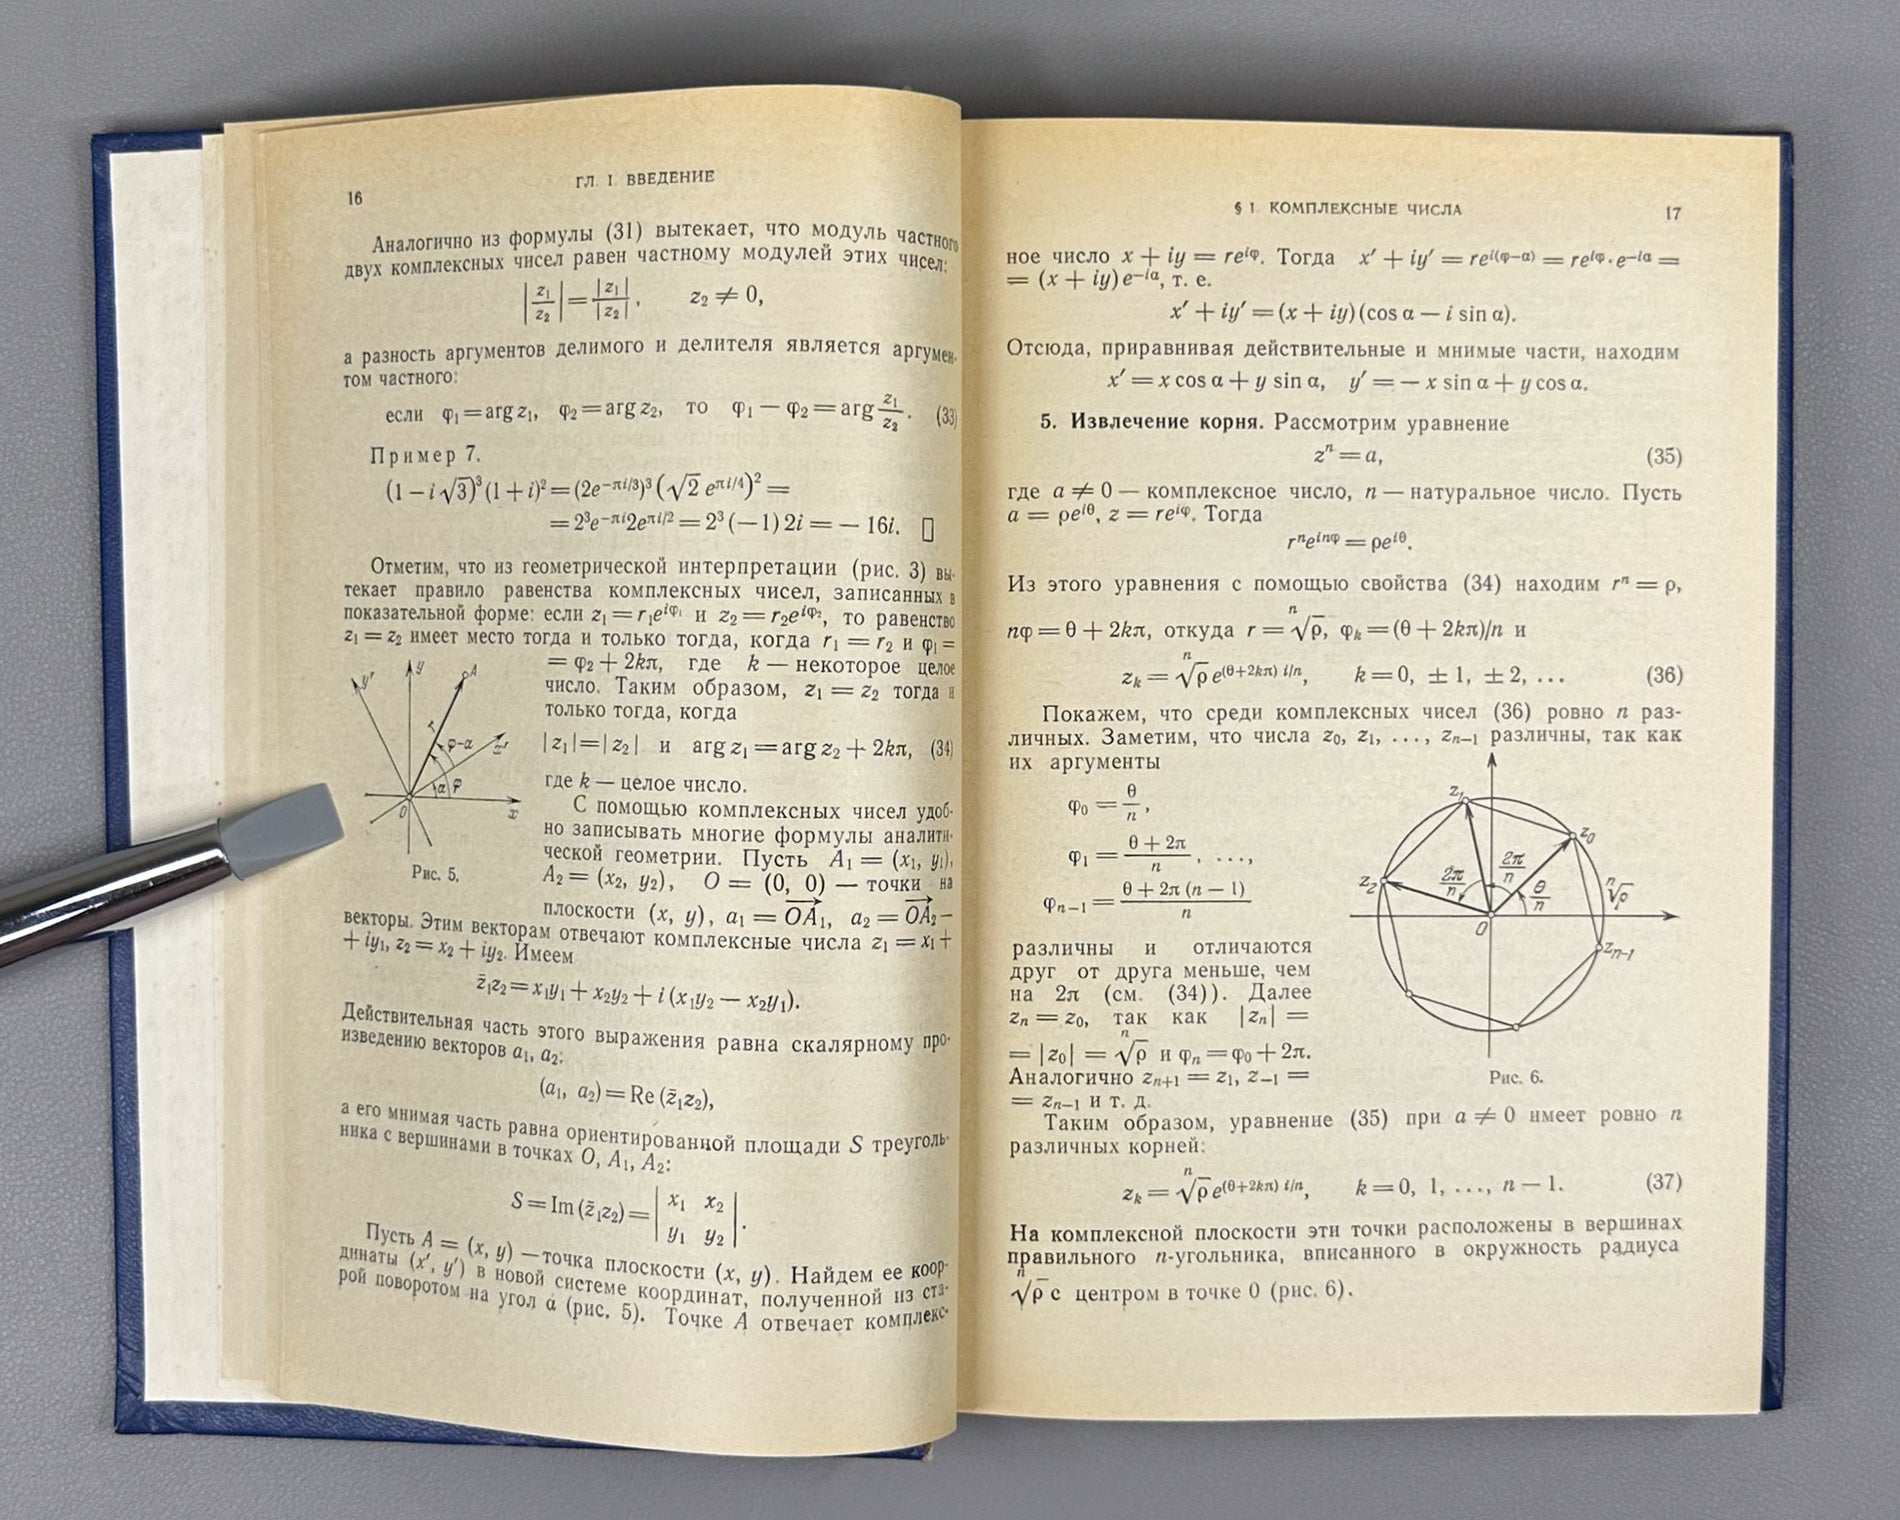 16
ГЛ. I. ВВЕДЕНИЕ
Аналогично из формулы (31) вытекает, что модуль частного
двух комплексных чисел равен частному модулей этих чисел:
|z₁/z₂| = |z₁|/|z₂|, z₂ ≠ 0,
а разность аргументов делимого и делителя является аргумен-
том частного:
если φ₁ = arg z₁, φ₂ = arg z₂, то φ₁ — φ₂ = arg z₁/z₂. (33)
Пример 7.
(1 — i√3)³(1 + i)² = (2e^{−πi/3})³(√2 e^{πi/4})² =
= 2³e^{−πi}2e^{πi/2} = 2³(—1) 2i = — 16i. □
Отметим, что из геометрической интерпретации (рис. 3) вы-
текает правило равенства комплексных чисел, записанных в
показательной форме: если z₁ = r₁e^{iφ₁} и z₂ = r₂e^{iφ₂}, то равенство
z₁ = z₂ имеет место тогда и только тогда, когда r₁ = r₂ и φ₁ =
= φ₂ + 2kπ, где k — некоторое целое
число. Таким образом, z₁ = z₂ тогда и
только тогда, когда
|z₁| = |z₂| и arg z₁ = arg z₂ + 2kπ, (34)
где k — целое число.
С помощью комплексных чисел удоб-
но записывать многие формулы аналити-
ческой геометрии. Пусть A₁ = (x₁, y₁),
A₂ = (x₂, y₂), O = (0, 0) — точки на
плоскости (x, y), a₁ = OA₁, a₂ = OA₂ —
y' y A r φ−α x' α φ O x
Рис. 5.
векторы. Этим векторам отвечают комплексные числа z₁ = x₁ +
+ iy₁, z₂ = x₂ + iy₂. Имеем
z̄₁z₂ = x₁y₁ + x₂y₂ + i (x₁y₂ — x₂y₁).
Действительная часть этого выражения равна скалярному про-
изведению векторов a₁, a₂:
(a₁, a₂) = Re (z̄₁z₂),
а его мнимая часть равна ориентированной площади S треуголь-
ника с вершинами в точках O, A₁, A₂:
S = Im (z̄₁z₂) = | x₁ x₂ |
| y₁ y₂ |.
Пусть A = (x, y) — точка плоскости (x, y). Найдем ее коор-
динаты (x', y') в новой системе координат, полученной из ста-
рой поворотом на угол α (рис. 5). Точке A отвечает комплекс-
§ 1. КОМПЛЕКСНЫЕ ЧИСЛА
17
ное число x + iy = re^{iφ}. Тогда x' + iy' = re^{i(φ−α)} = re^{iφ}·e^{−iα} =
= (x + iy) e^{−iα}, т. е.
x' + iy' = (x + iy)(cos α — i sin α).
Отсюда, приравнивая действительные и мнимые части, находим
x' = x cos α + y sin α, y' = — x sin α + y cos α.
5. Извлечение корня. Рассмотрим уравнение
zⁿ = a, (35)
где a ≠ 0 — комплексное число, n — натуральное число. Пусть
a = ρe^{iθ}, z = re^{iφ}. Тогда
rⁿe^{inφ} = ρe^{iθ}.
Из этого уравнения с помощью свойства (34) находим rⁿ = ρ,
nφ = θ + 2kπ, откуда r = ⁿ√ρ, φₖ = (θ + 2kπ)/n и
zₖ = ⁿ√ρ e^{(θ+2kπ) i/n}, k = 0, ± 1, ± 2, ... (36)
Покажем, что среди комплексных чисел (36) ровно n раз-
личных. Заметим, что числа z₀, z₁, ..., zₙ₋₁ различны, так как
их аргументы
φ₀ = θ/n,
φ₁ = (θ + 2π)/n, ...,
φₙ₋₁ = (θ + 2π (n — 1))/n
различны и отличаются
друг от друга меньше, чем
на 2π (см. (34)). Далее
zₙ = z₀, так как |zₙ| =
= |z₀| = ⁿ√ρ и φₙ = φ₀ + 2π.
Аналогично zₙ₊₁ = z₁, z₋₁ =
= zₙ₋₁ и т. д.
z₁ z₀ z₂ 2π/n 2π/n θ/n ⁿ√ρ O zₙ₋₁
Рис. 6.
Таким образом, уравнение (35) при a ≠ 0 имеет ровно n
различных корней:
zₖ = ⁿ√ρ e^{(θ+2kπ) i/n}, k = 0, 1, ..., n — 1. (37)
На комплексной плоскости эти точки расположены в вершинах
правильного n-угольника, вписанного в окружность радиуса
ⁿ√ρ с центром в точке 0 (рис. 6).